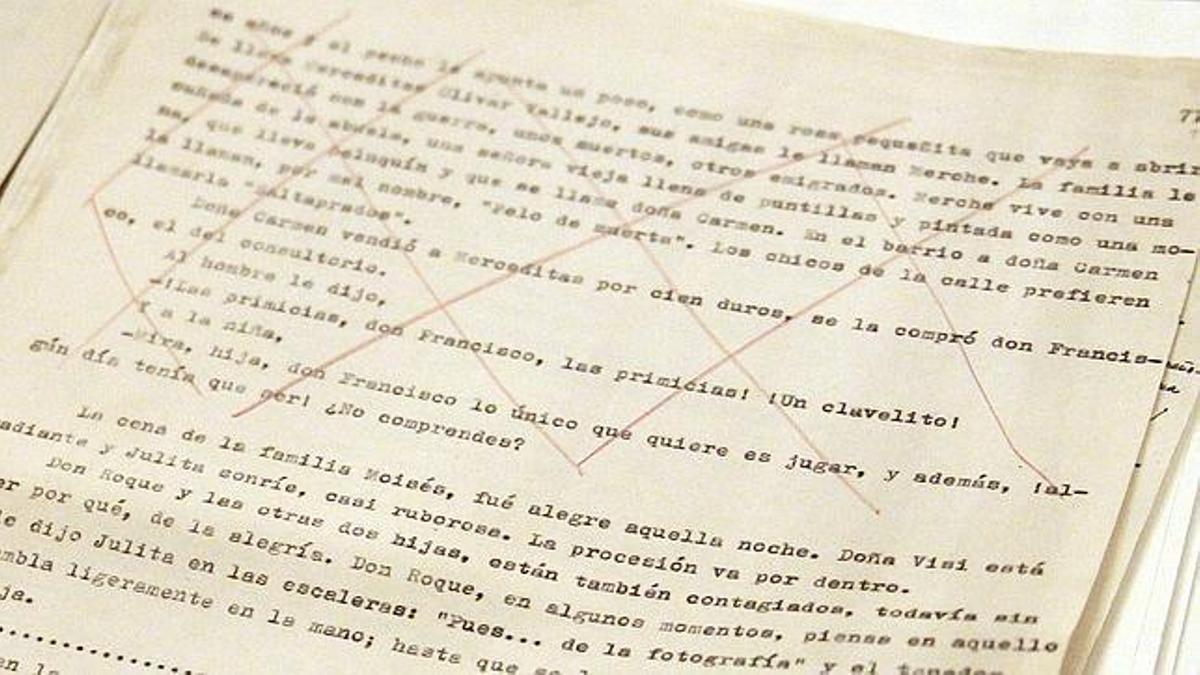 77
ce años y el pecho le apunta un poco, como una rosa pequeñita que vaya a abrir
Se llama Merceditas Olivar Vallejo, sus amigas le llaman Merche. La familia le
desapareció con la guerra, unos muertos, otros emigrados. Merche vive con una
cuñada de la abuela, una señora vieja llena de puntillas y pintada como una mo-
na, que lleva peluquín y que se llama doña Carmen. En el barrio a doña Carmen
la llaman, por mal nombre, "Pelo de muerta". Los chicos de la calle prefieren
llamarla "Saltaprados".
Doña Carmen vendió a Merceditas por cien duros, se la compró don Francis-
co, el del consultorio.
Al hombre le dijo,
-¡Las primicias, don Francisco, las primicias! ¡Un clavelito!
Y a la niña,
-Mira, hija, don Francisco lo único que quiere es jugar, y además, ¡al-
gún día tenía que ser! ¿No comprendes?
La cena de la familia Moisés, fué alegre aquella noche. Doña Visi está
adiante y Julita sonríe, casi ruborosa. La procesión va por dentro.
Don Roque y las otras dos hijas, están también contagiados, todavía sin
er por qué, de la alegría. Don Roque, en algunos momentos, piensa en aquello
le dijo Julita en las escaleras: "Pues... de la fotografía" y el tenedor
mbla ligeramente en la mano; hasta que se
ja.
....................
en la